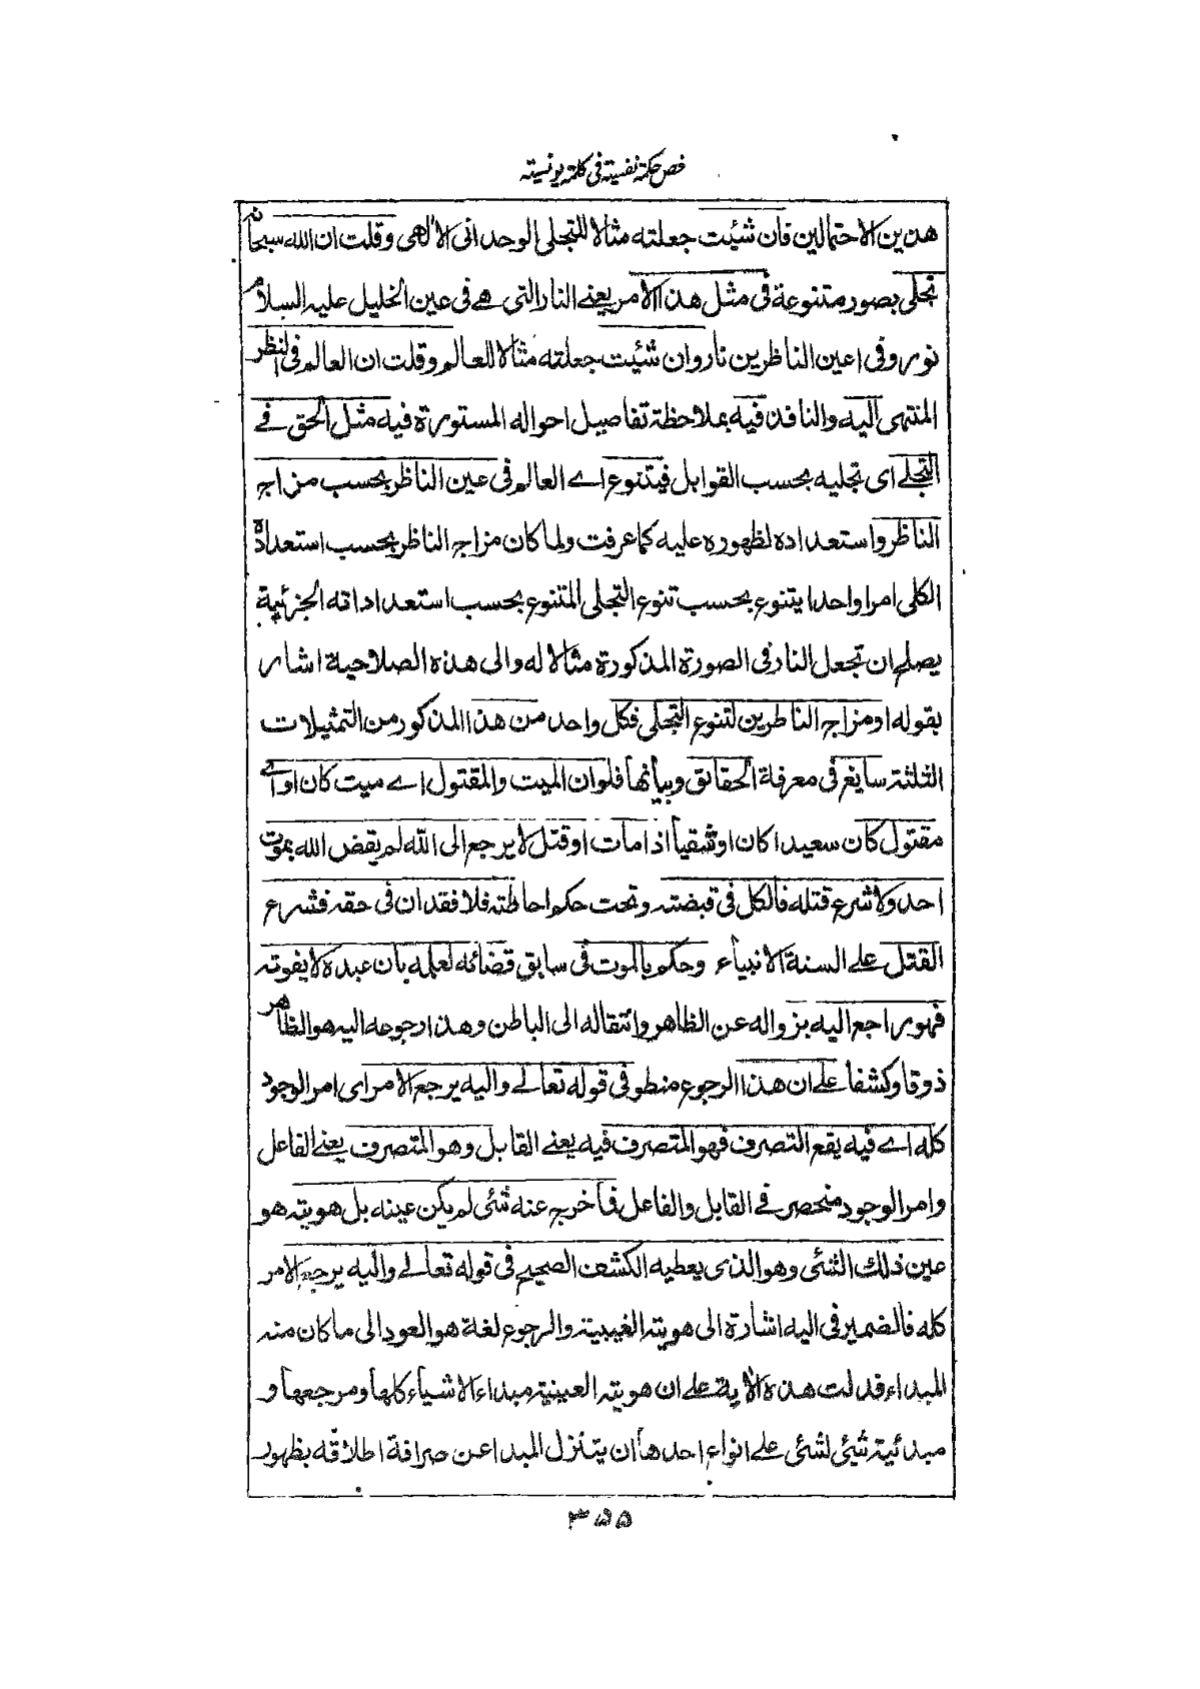 فص حكمة نفسية فى كلمة يونسية
هذين الاحتمالين فان شئت جعلته مثالا للتجلى الوحدانى الالهى وقلت ان الله سبحانه
تجلى بصور متنوعة فى مثل هذا الامر يعنى النار التى هے فى عين الخليل عليه السلام
نور وفى اعين الناظرين نار وان شئت جعلته مثالا للعالم وقلت ان العالم فى النظر
المنتهى اليه والنافذ فيه بملاحظة تفاصيل احواله المستورة فيه مثل الحق فے
التجلے اى تجليه بحسب القوابل فيتنوع اے العالم فى عين الناظر بحسب مزاج
الناظر واستعداده لظهوره عليه كما عرفت ولما كان مزاج الناظر بحسب استعداده
الكلى امرا واحدا يتنوع بحسب تنوع التجلى المتنوع بحسب استعداداته الجزئية
يصلح ان تجعل النار فى الصورة المذكورة مثالا له والى هذه الصلاحية اشار
بقوله او مزاج الناظرين لتنوع التجلى فكل واحد من هذا المذكور من التمثيلات
الثلثة سايغ فى معرفة الحقائق وبيانها فلو ان الميت والمقتول اے ميت كان او اے
مقتول كان سعيدا كان او شقيا اذا مات او قتل لا يرجع الى الله لم يقض الله بموت
احد ولا شرع قتله فالكل فى قبضته وتحت حكم احاطته فلا فقدان فى حقه فشرع
القتل على السنة الانبياء وحكم بالموت فى سابق قضائه لعلمه بان عبده لا يفوته
فهو راجع اليه بزواله عن الظاهر وانتقاله الى الباطن وهذا رجوعه اليه هو الظاهر
ذوقا وكشفا على ان هذا الرجوع منطو فى قوله تعالے واليه يرجع الامر اى امر الوجود
كله اے فيه يقع التصرف فهو المتصرف فيه يعنى القابل وهو المتصرف يعنى الفاعل
وامر الوجود منحصر فے القابل والفاعل فما خرج عنه شئى لم يكن عينه بل هويته هو
عين ذلك الشئى وهو الذى يعطيه الكشف الصحيح فى قوله تعالے واليه يرجع الامر
كله فالضمير فى اليه اشارة الى هويته الغيبية والرجوع لغة هو العود الى ما كان منه
المبداء فدلت هذه الاية على ان هويته العينية مبداء الاشياء كلها ومرجعها و
مبدئية شيئى لشئى على انواع احدها ان يتنزل المبدا عن صرافة اطلاقه بظهور
٣٥٥